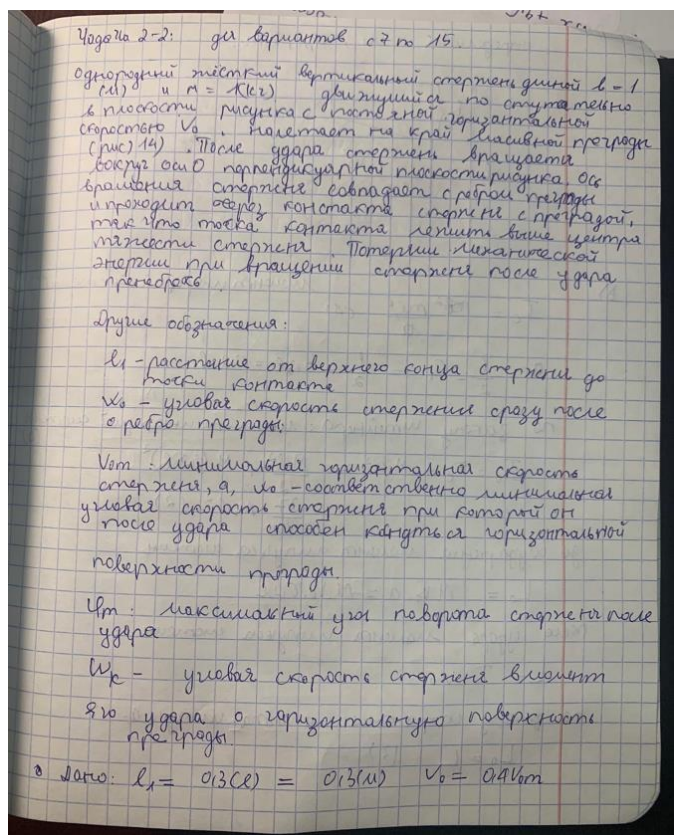 Задача 2-2: для вариантов с 7 по 15.
Однородный жёсткий вертикальный стержень длиной l - 1
(м) и m = 1(кг) движущийся поступательно
в плоскости рисунка с постоянной горизантальной
скоростью V₀. налетает на край масивной преграды
(рис) 14). После удара стержень вращается
вокруг оси О перпендикуларной плоскости рисунка ось
вращения стержня совпадает с ребром преграды
и проходит через констакта стержня с преградой,
так что точка контакта лежить выше центра
тяжести стержня. Потерями механической
энергии при вращении стержня после удара
пренеброжь
Другие обозначения:
l₁ - расстояние от верхнего конца стержня до
точки контакта
ω₀ - угловая скорость стержния сразу после
о ребро преграды.
V₀m: минимольная горизантальная скорость
стержня, а, ω₀ - соответственно минимольная
угловая скорость стержня при который он
после удара способен каснуться горизонтальной
поверхности прграды.
φm: максимальный угол поворота стержня после
удара
Wк - угловая скорость стержня в момент
его удара о горизонтальную поверхность
преграды.
Дано: l₁ = 0,3(l) = 0,3(м) V₀ = 0,4V₀m